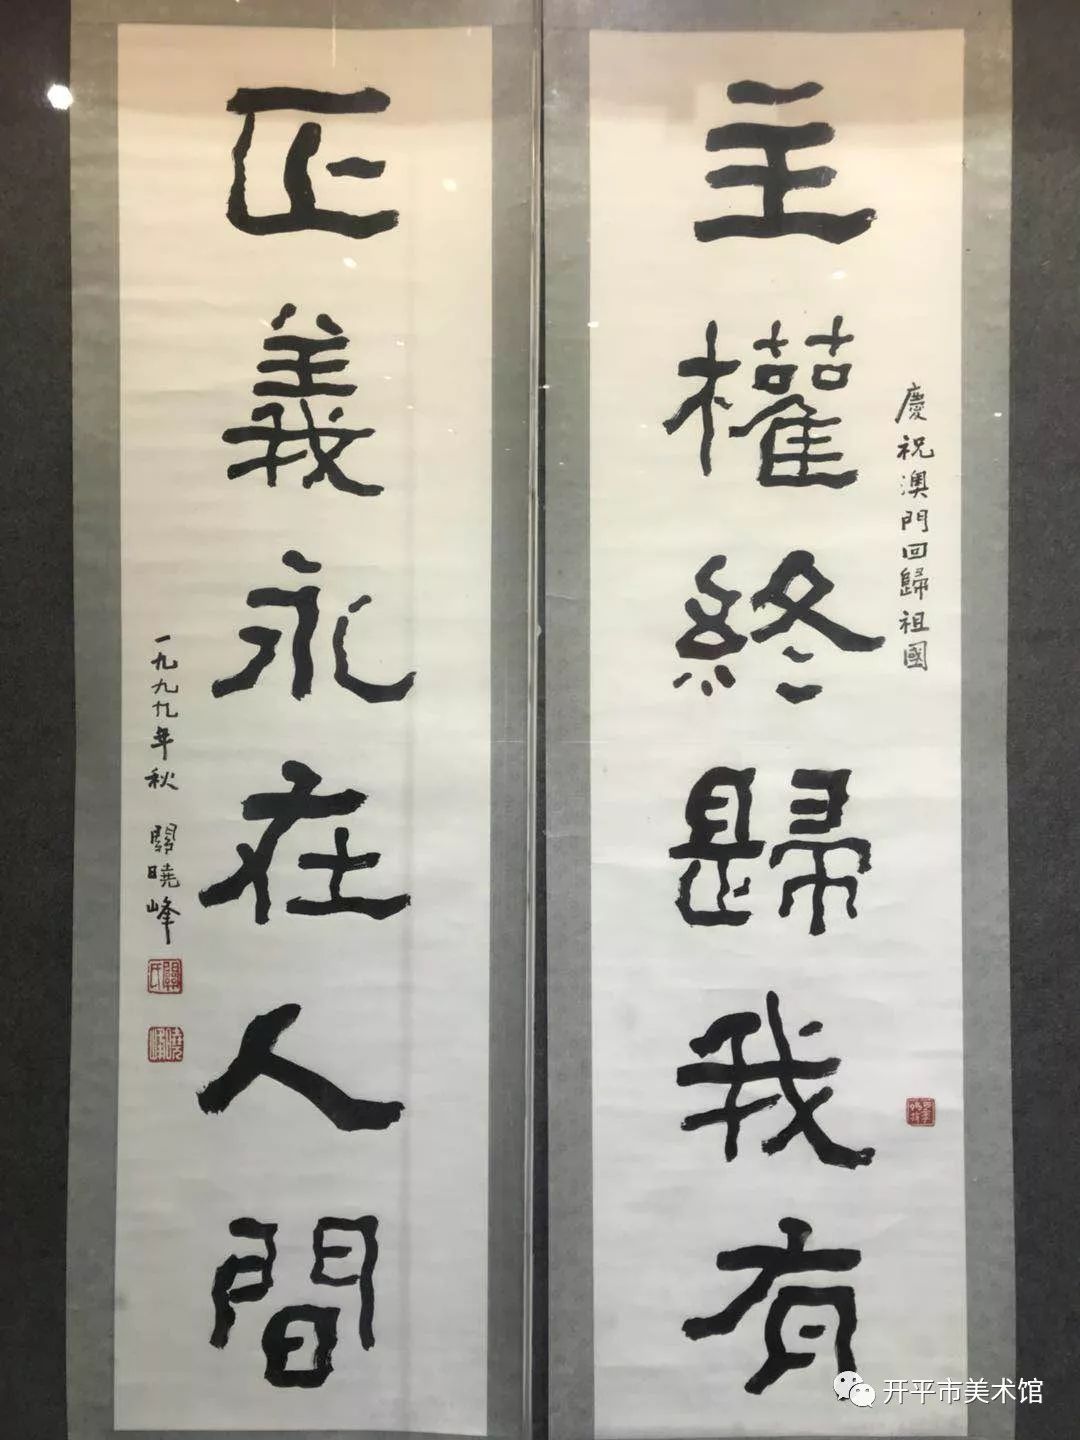 主權終歸我有
慶祝澳門回歸祖國
正義永在人間
一九九九年秋 關曉峰
關氏
曉峰
开平市美术馆